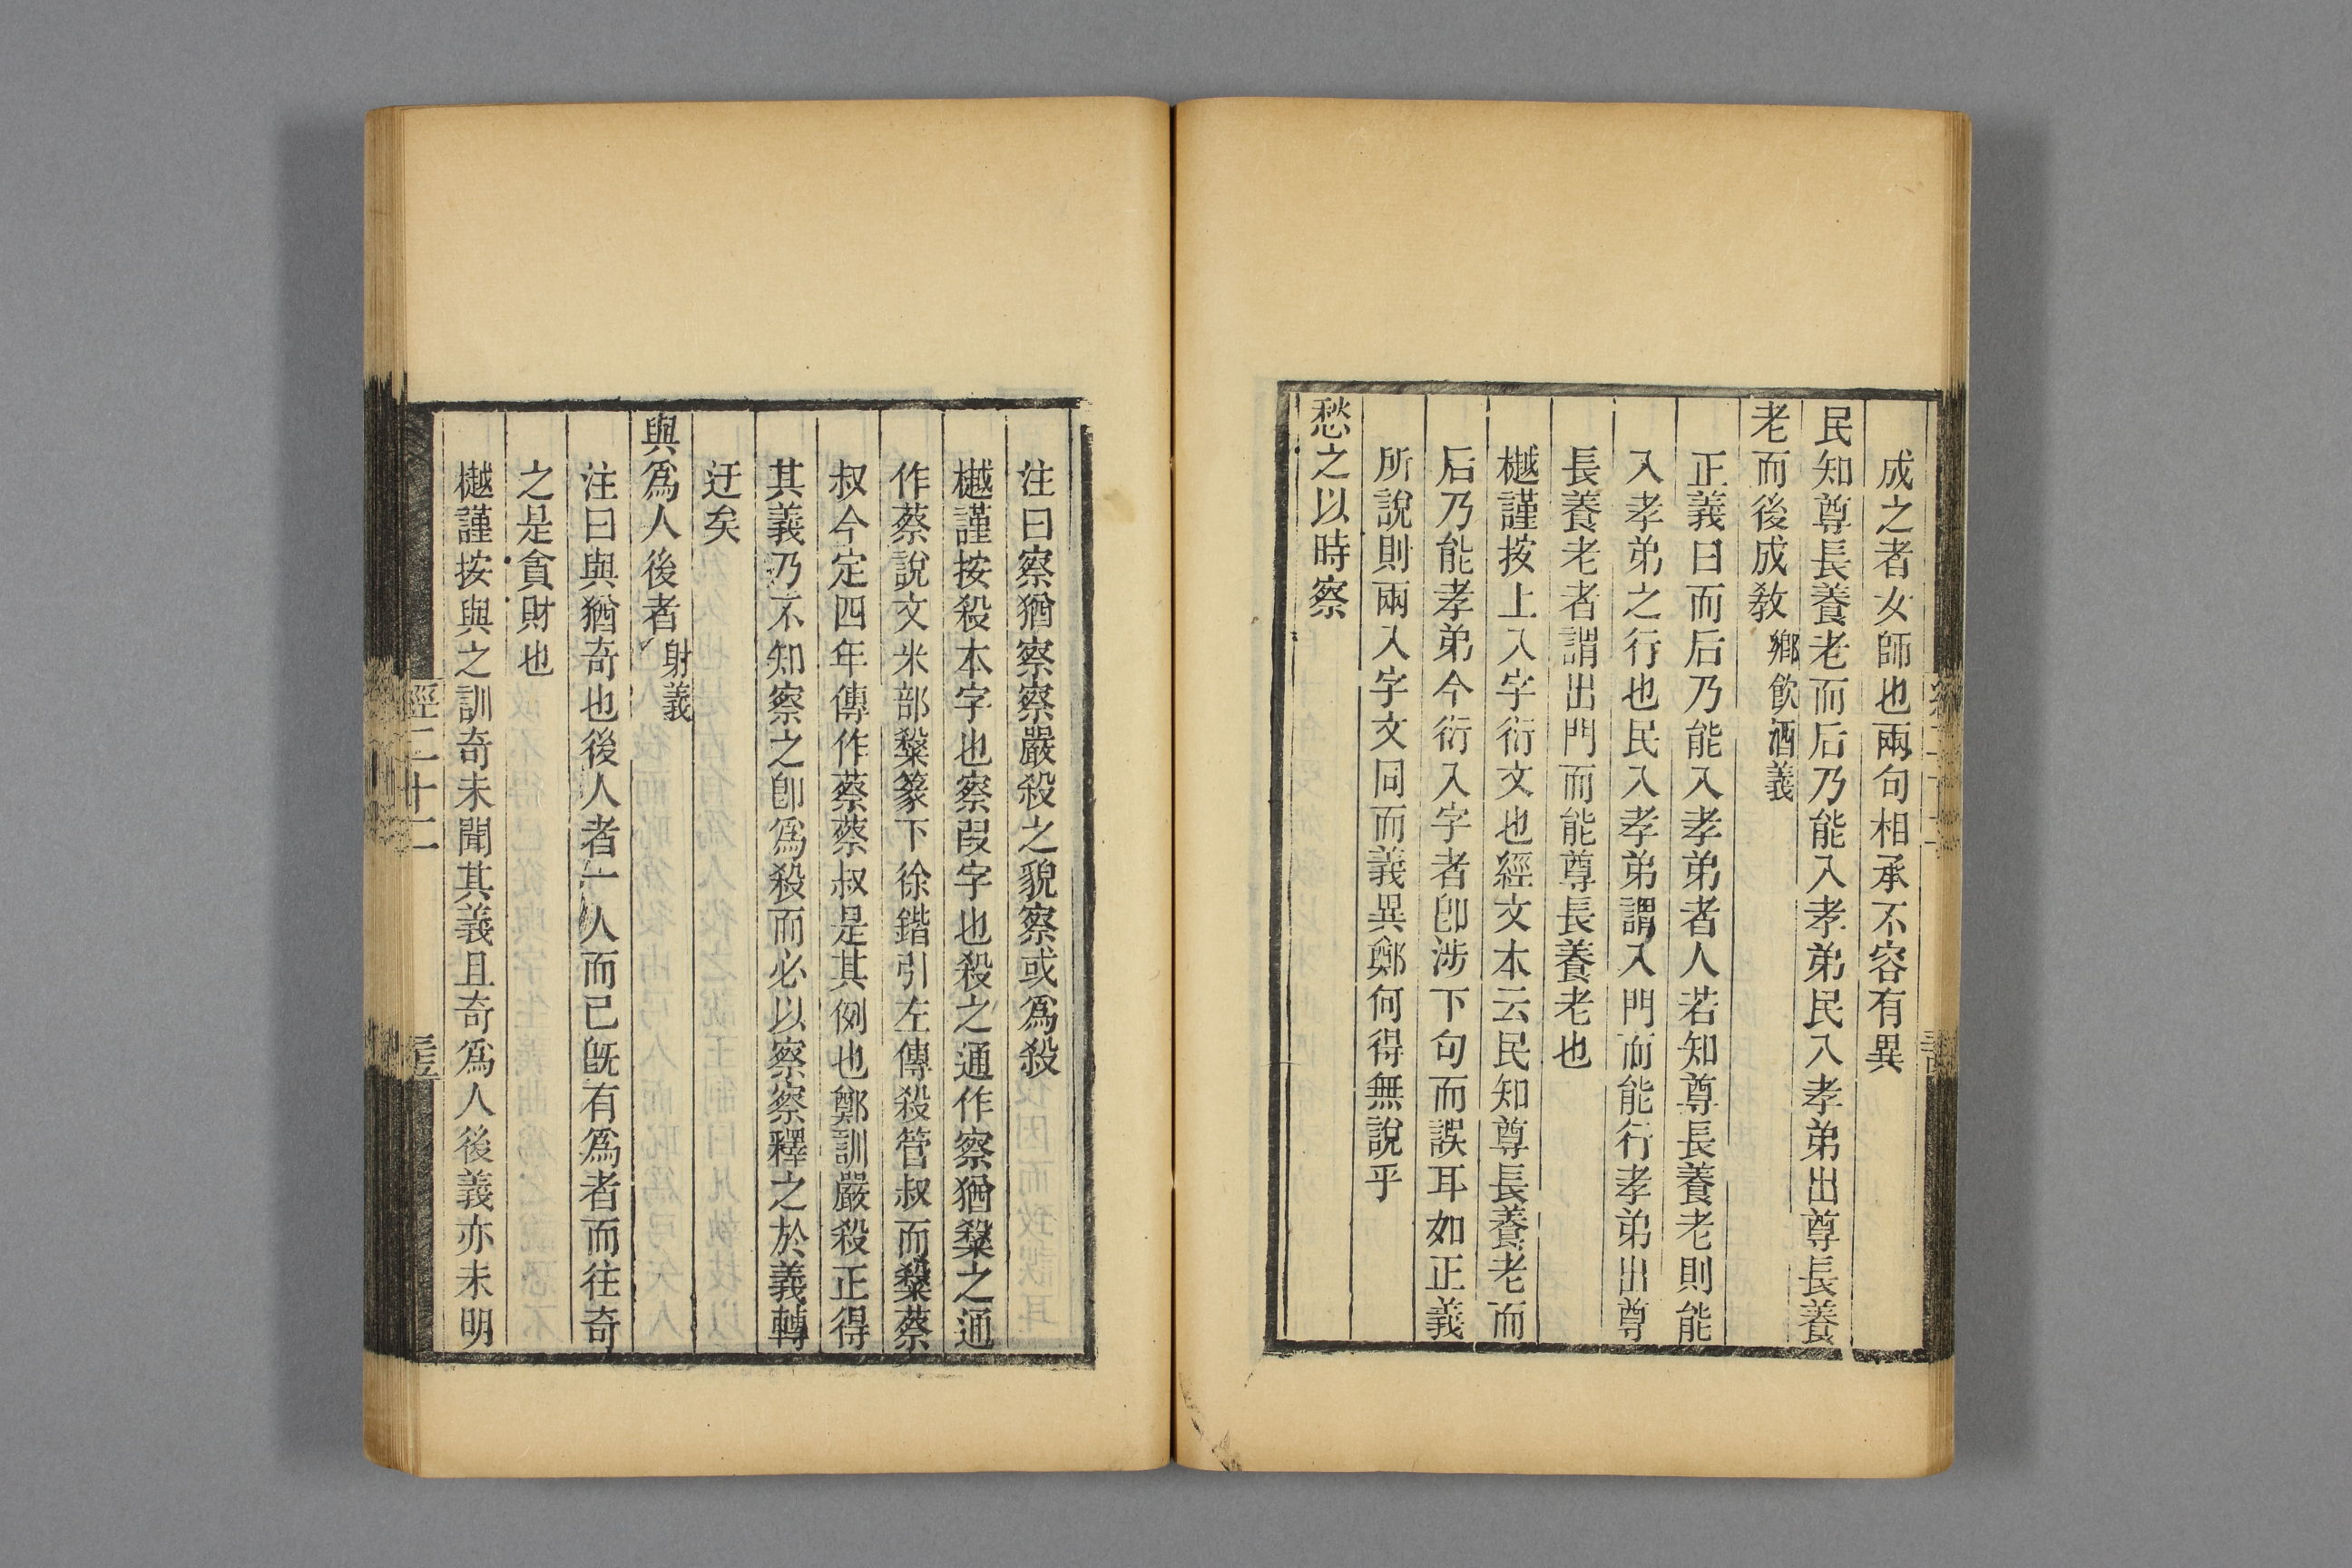 成之者女師也兩句相承不容有異
民知尊長養老而后乃能入孝弟民入孝弟出尊長養
老而後成敎鄉飮酒義
正義曰而后乃能入孝弟者人若知尊長養老則能
入孝弟之行也民入孝弟謂入門而能行孝弟出尊
長養老者謂出門而能尊長養老也
樾謹按上入字衍文也經文本云民知尊長養老而
后乃能孝弟今衍入字者卽涉下句而誤耳如正義
所說則兩入字文同而義異鄭何得無說乎
愁之以時察
注曰察猶察察嚴殺之貌察或爲殺
樾謹按殺本字也察叚字也殺之通作察猶䊛之通
作蔡說文米部䊛篆下徐鍇引左傳殺管叔而䊛蔡
叔今定四年傳作蔡蔡叔是其例也鄭訓嚴殺正得
其義乃不知察之卽爲殺而必以察察釋之於義轉
迂矣
與爲人後者射義
注曰與猶奇也後人者一人而已旣有爲者而往奇
之是貪財也
樾謹按與之訓奇未聞其義且奇爲人後義亦未明
經二十二
三五